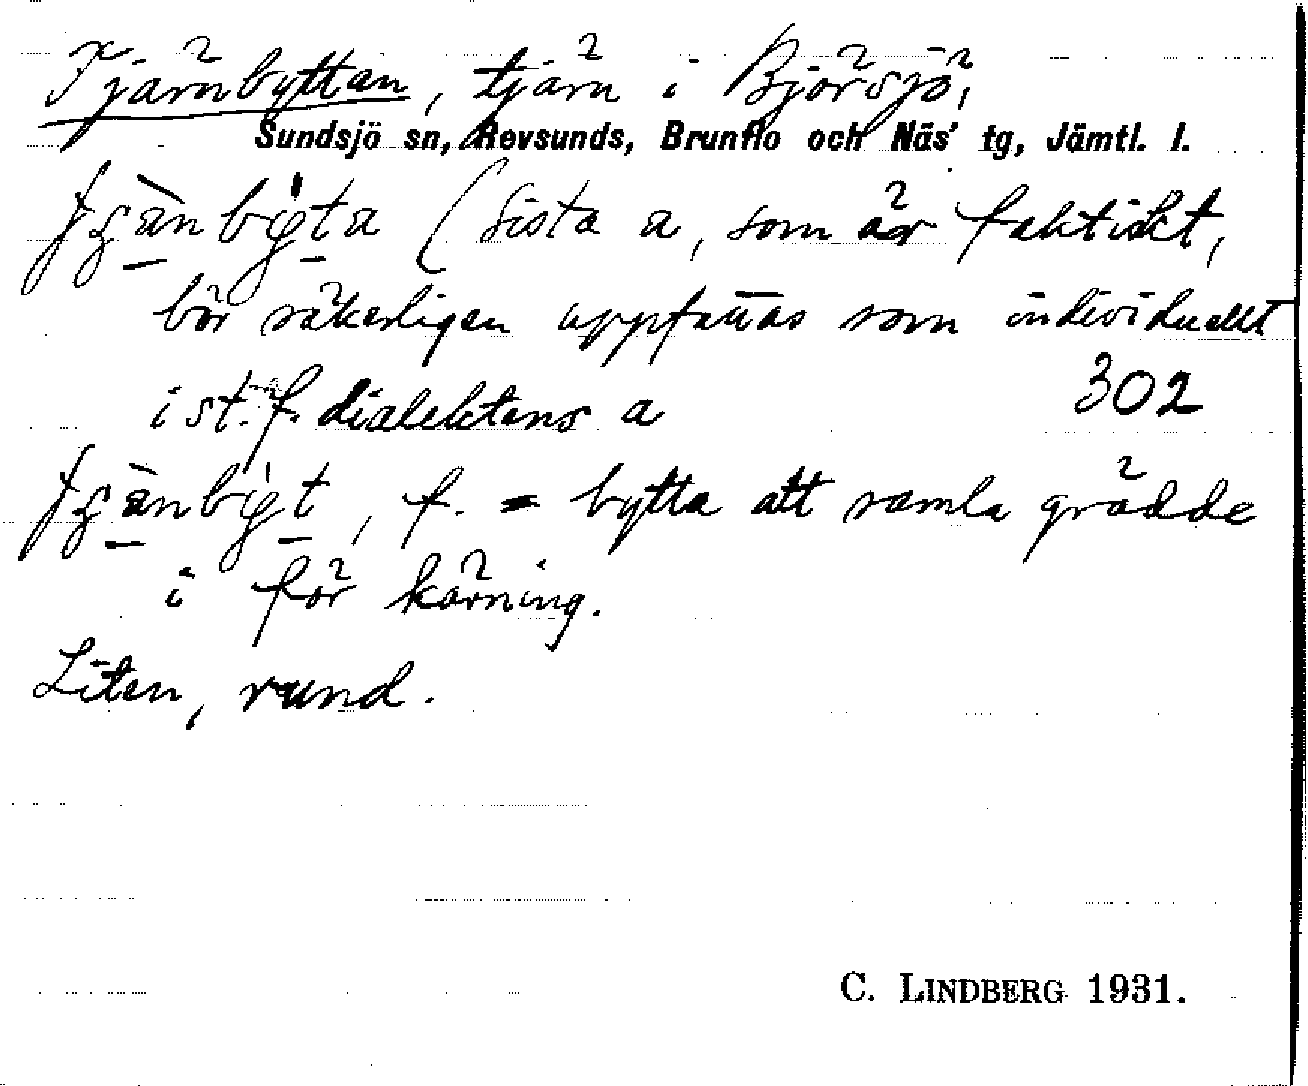 Tjärnbyttan, tjärn i Björsjö,
Sundsjö sn, Revsunds, Brunflo och Näs' tg, Jämtl. l.
(sista a, som är faktiskt,
bör säkerligen uppfattas som individuellt
i st. f. dialektens a
302
, f. = bytta att samla grädde
i för kärning.
Liten, rund.
C. LINDBERG 1931.